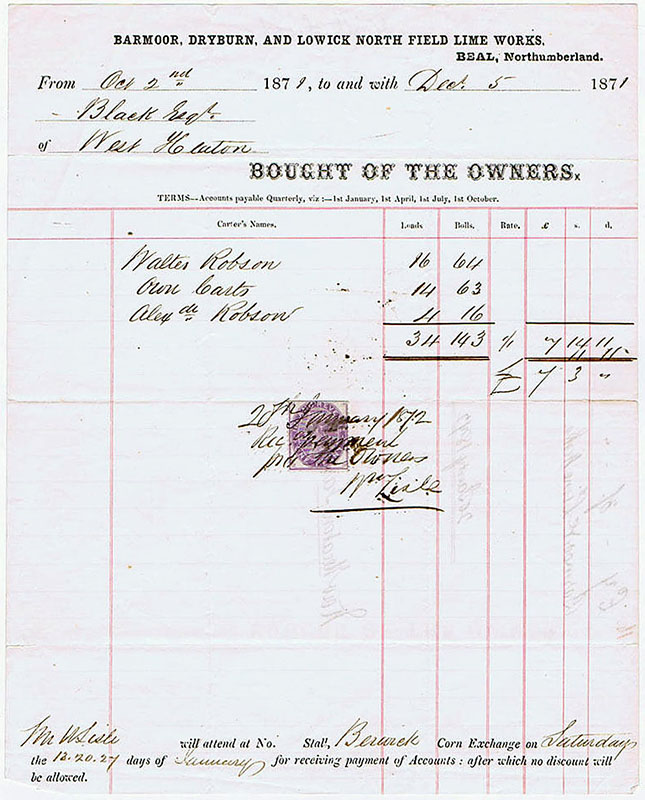 BARMOOR, DRYBURN, AND LOWICK NORTH FIELD LIME WORKS,
BEAL, Northumberland.
From Oct 2nd 1871, to and with Decr. 5 1871
- Black Esqr.
of West Heaton
BOUGHT OF THE OWNERS.
TERMS—Accounts payable Quarterly, viz :—1st January, 1st April, 1st July, 1st October.
Carter's Names. Loads Bolls. Rate. £ s. d.
Walter Robson 16 64
Own Carts 14 63
Alexdr Robson 4 16
34 143 1/1 7 14 11
11 11
£ 7 3 "
20th January 1872
Rec payment
pro the Owners
Wm Lisle
Mr W Lisle will attend at No. Stall, Berwick Corn Exchange on Saturdays
the 13.20.27 days of January for receiving payment of Accounts : after which no discount will
be allowed.